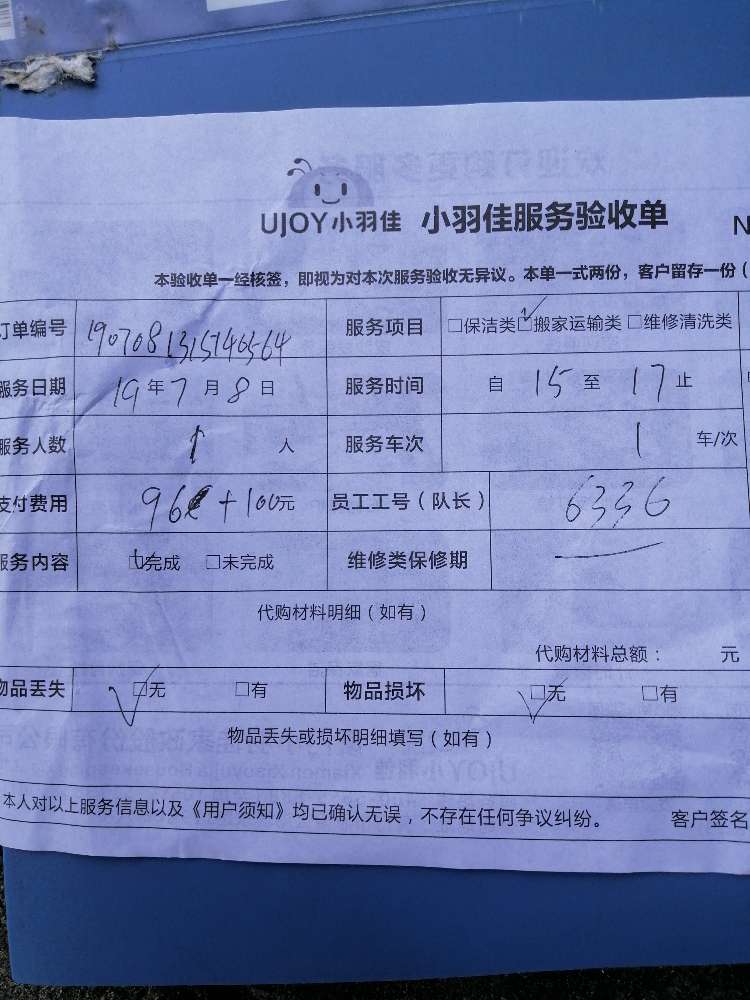 UJOY小羽佳 小羽佳服务验收单 N
本验收单一经核签，即视为对本次服务验收无异议。本单一式两份，客户留存一份（
订单编号 1907081315746564 服务项目 □保洁类 □搬家运输类 □维修清洗类
服务日期 19年7月8日 服务时间 自15至17止
服务人数 1人 服务车次 1车/次
支付费用 +100元 员工工号（队长） 6336
服务内容 □完成 □未完成 维修类保修期
代购材料明细（如有）
代购材料总额： 元
物品丢失 □无 □有 物品损坏 □无 □有
物品丢失或损坏明细填写（如有）
本人对以上服务信息以及《用户须知》均已确认无误，不存在任何争议纠纷。 客户签名